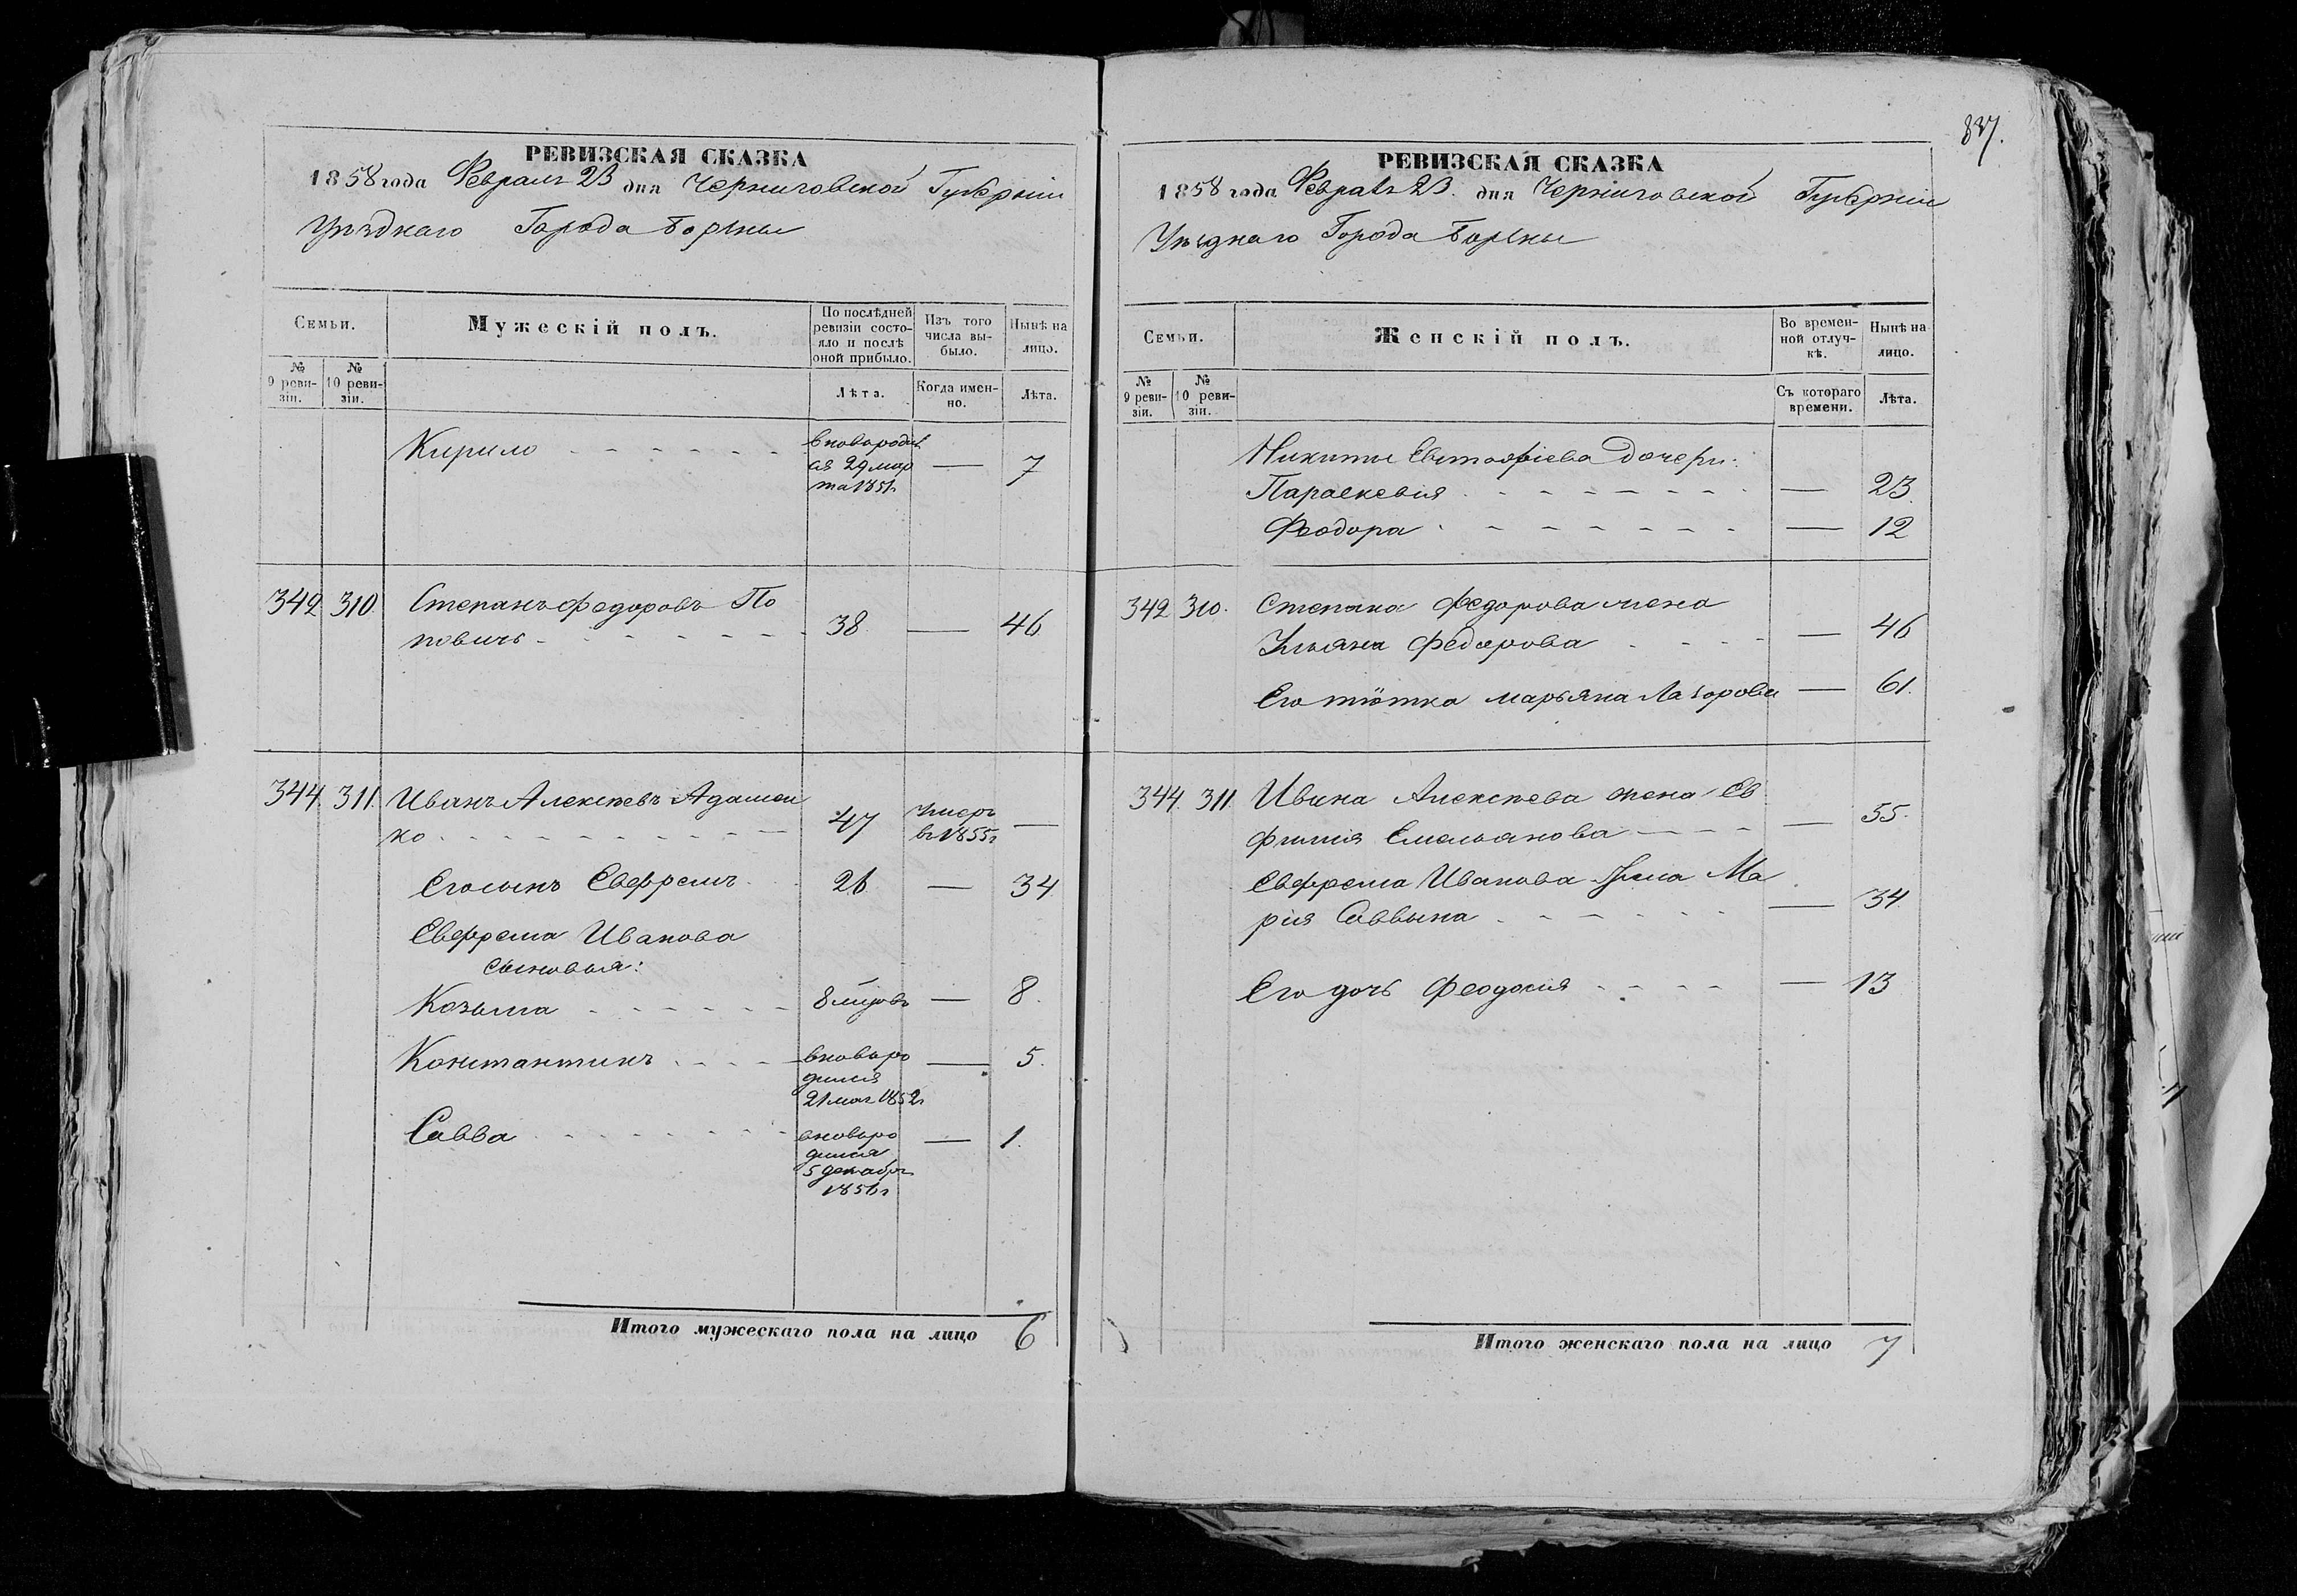 837.
РЕВИЗСКАЯ СКАЗКА
1858 года Февраля 23 дня Черниговской Губерніи
Уѣзднаго Города Борзны
Семьи.
Мужескій полъ.
По послѣдней ревизіи состояло и послѣ оной прибыло.
Изъ того числа выбыло.
Нынѣ на лицо.
№ 9 ревизіи.
№ 10 ревизіи.
Лѣта.
Когда именно.
Лѣта.
Кирило
вновородив
ся 29 мар
та 1851.
— 7
342 310 Степанъ Федоровъ По
повичъ
38 — 46
344. 311. Иванъ Алексѣевъ Адамен
ко
47
Умеръ
въ 1855г
—
Его сынъ Евфремъ 26 — 34
Евфрема Иванова
сыновья:
Козьма 8 мѣсяцовъ — 8.
Константинъ
вновьро
дился
21 мая 1852г
— 5.
Савва
вновьро
дился
5 декабря
1856г
— 1.
Итого мужескаго пола на лицо 6
РЕВИЗСКАЯ СКАЗКА
1858 года Февраля 23. дня Черниговской Губерніи
Уѣзднаго Города Борзны
Семьи.
Женскій полъ.
Во временной отлучкѣ.
Нынѣ на лицо.
№ 9 ревизіи.
№ 10 ревизіи.
Съ котораго времени.
Лѣта.
Никиты Евстафіева дочери:
Параскевия — 23
Феодора — 12
342 310. Степана Федорова жена
Ульяна Федорова — 46
Его тіотка Марьяна Лазорова — 61.
344. 311. Ивана Алексѣева жена Ев
фимия Емельянова — 55.
Евфрема Иванова жена Ма
рия Саввина — 34
Его дочь Феодосия — 13
Итого женскаго пола на лицо 7